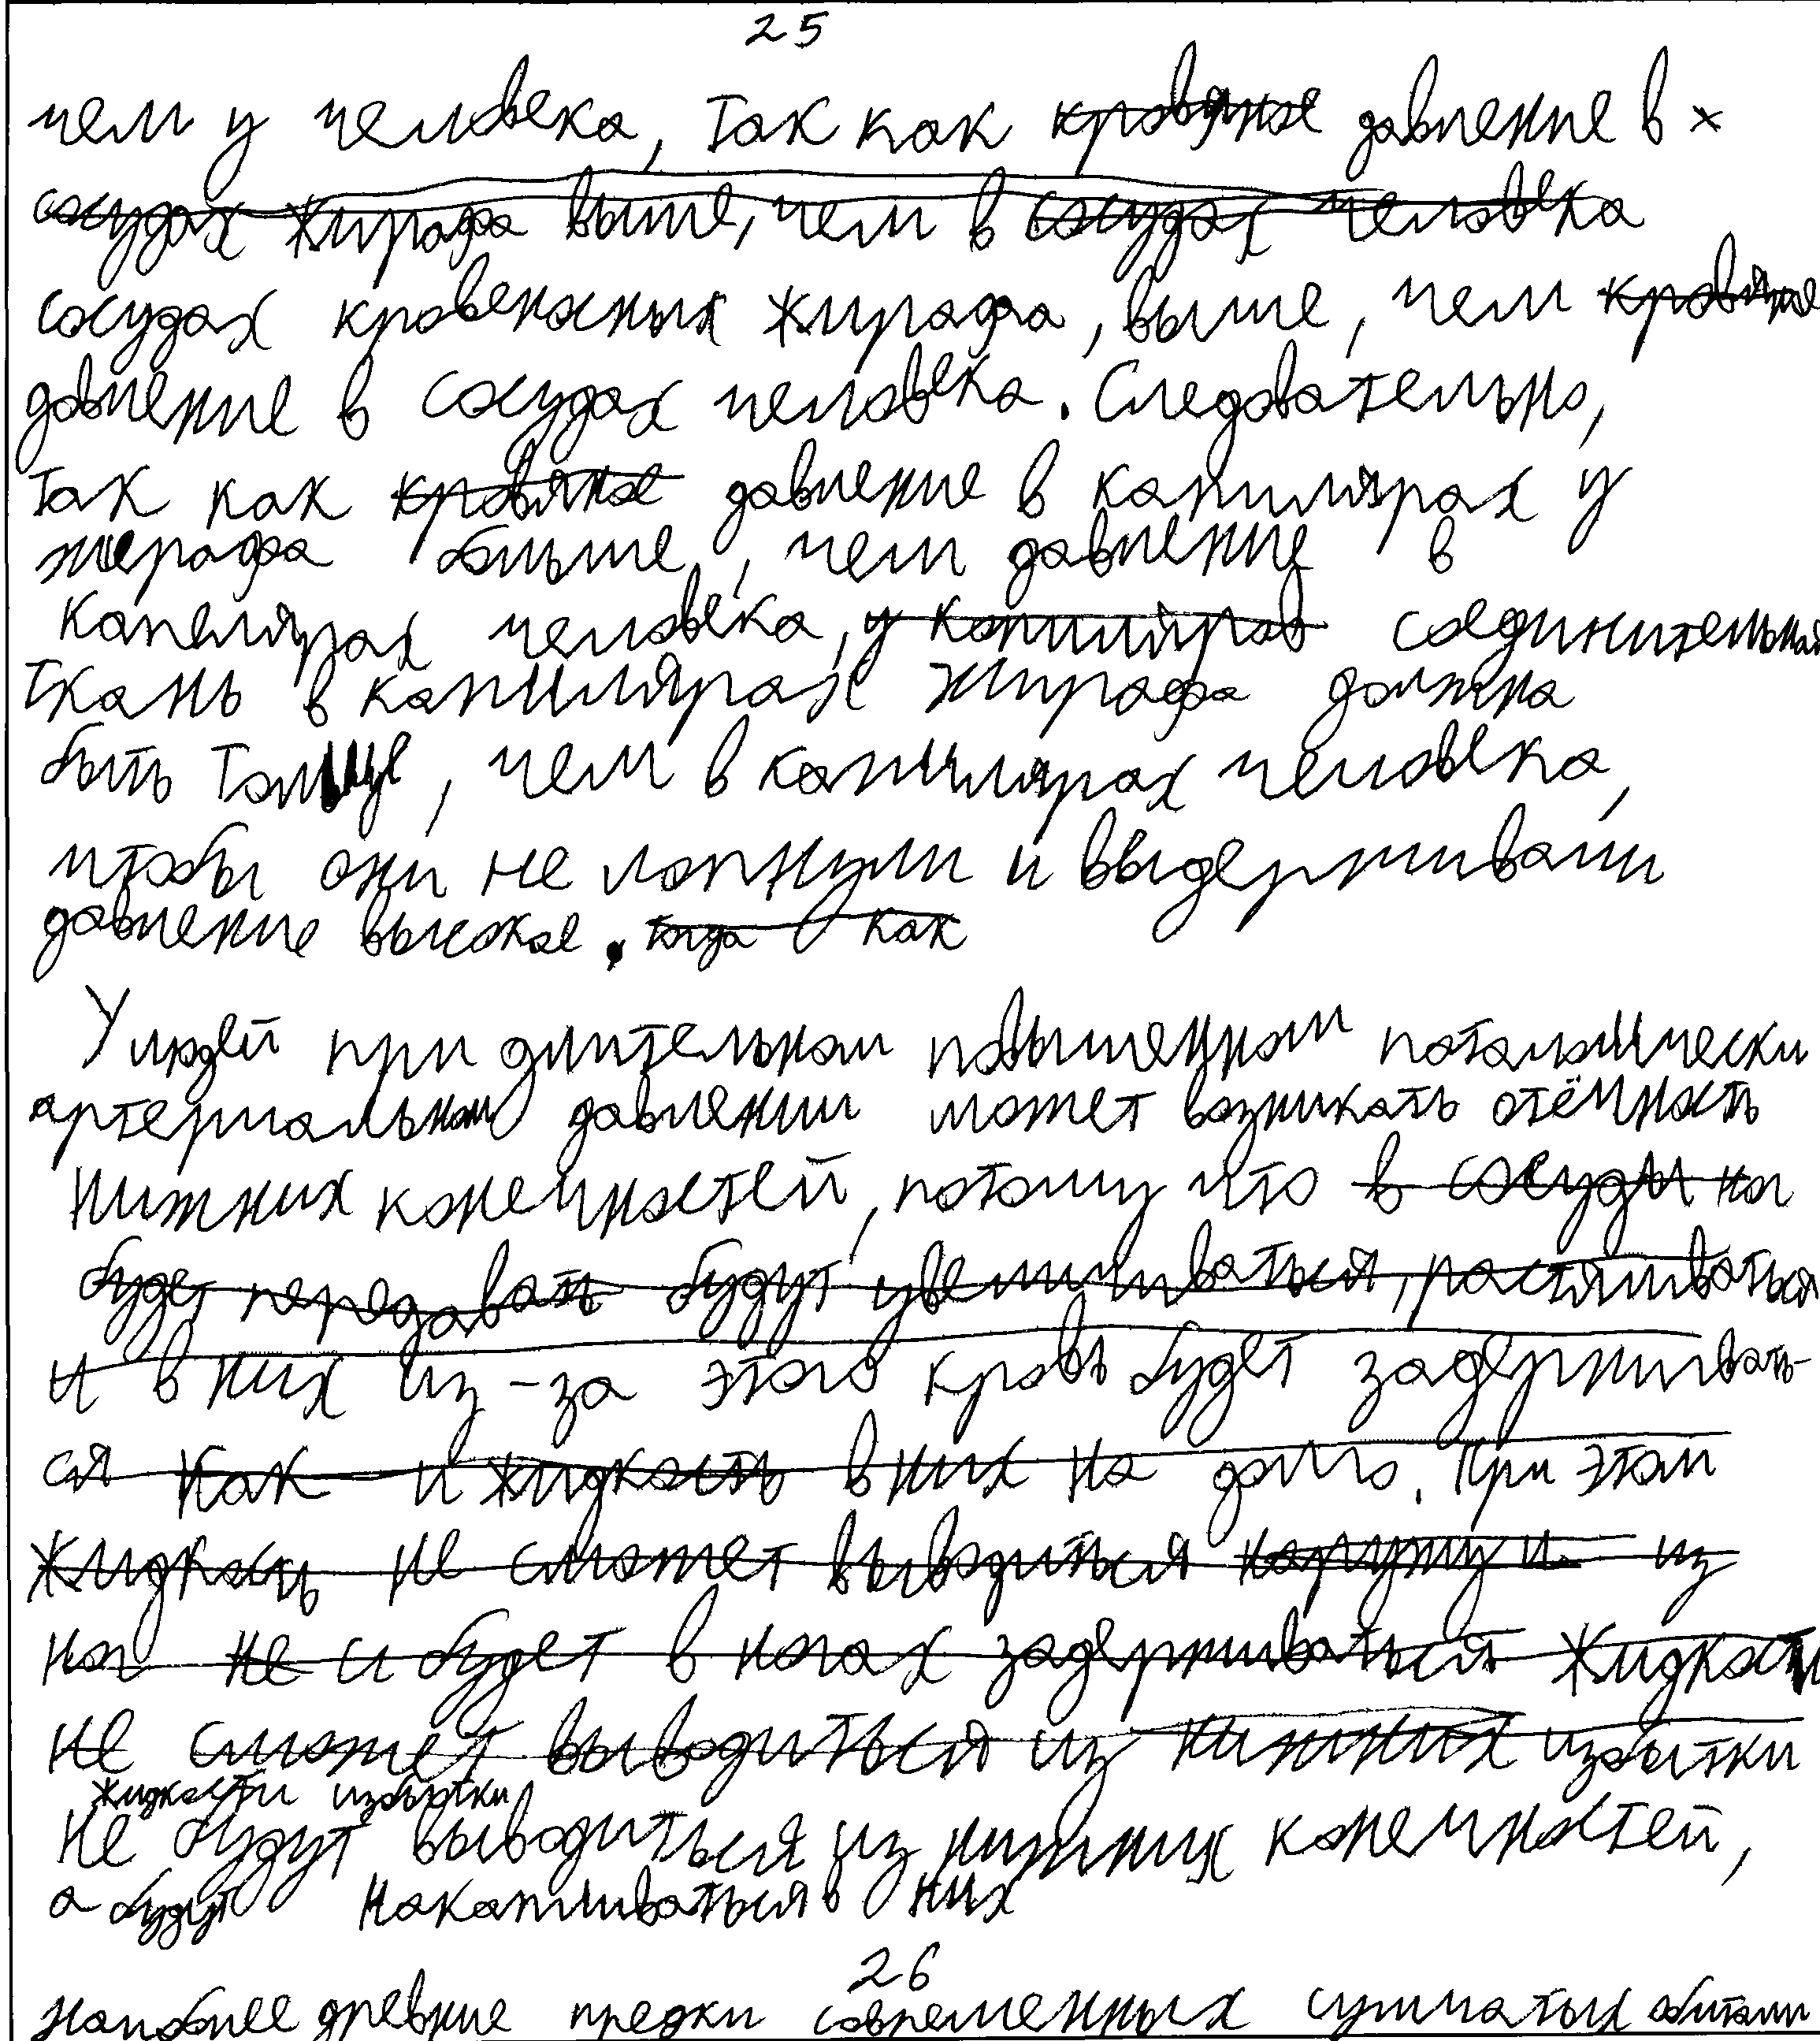 25
чем у человека, так как кровяное давление в х
сосудах жирафа выше, чем в сосудах человека
сосудах кровеносных жирафа, выше, чем кровяное
давление в сосудах человека. Следовательно,
так как кровяное давление в капилярах у
жирафа больше, чем давление в
капелярах человека, у капиляров соединительная
ткань в капилярах жирафа должна
быть толще, чем в капилярах человека,
чтобы они не лопнули и выдерживали
давление высокое. когда как
У людей при длительном повышенном потологически
артериальном давлении может возникать отёчность
нижних конечностей, потому что в сосуды ног
будет передавать будут увеличиваться, растягиваться
и в них из-за этого кровь будет задерживать-
ся как и жидкость в них на долго. При этом
жидкость не сможет выводиться наружу и из
ног не и будет в ногах задерживаться жидкость
не сможет выводиться из нижних избытки
жидкости избытки
не будут выводиться из нижних конечностей,
а будут накапливаться в них
26
Наиболее древние предки современных сумчатых обитали